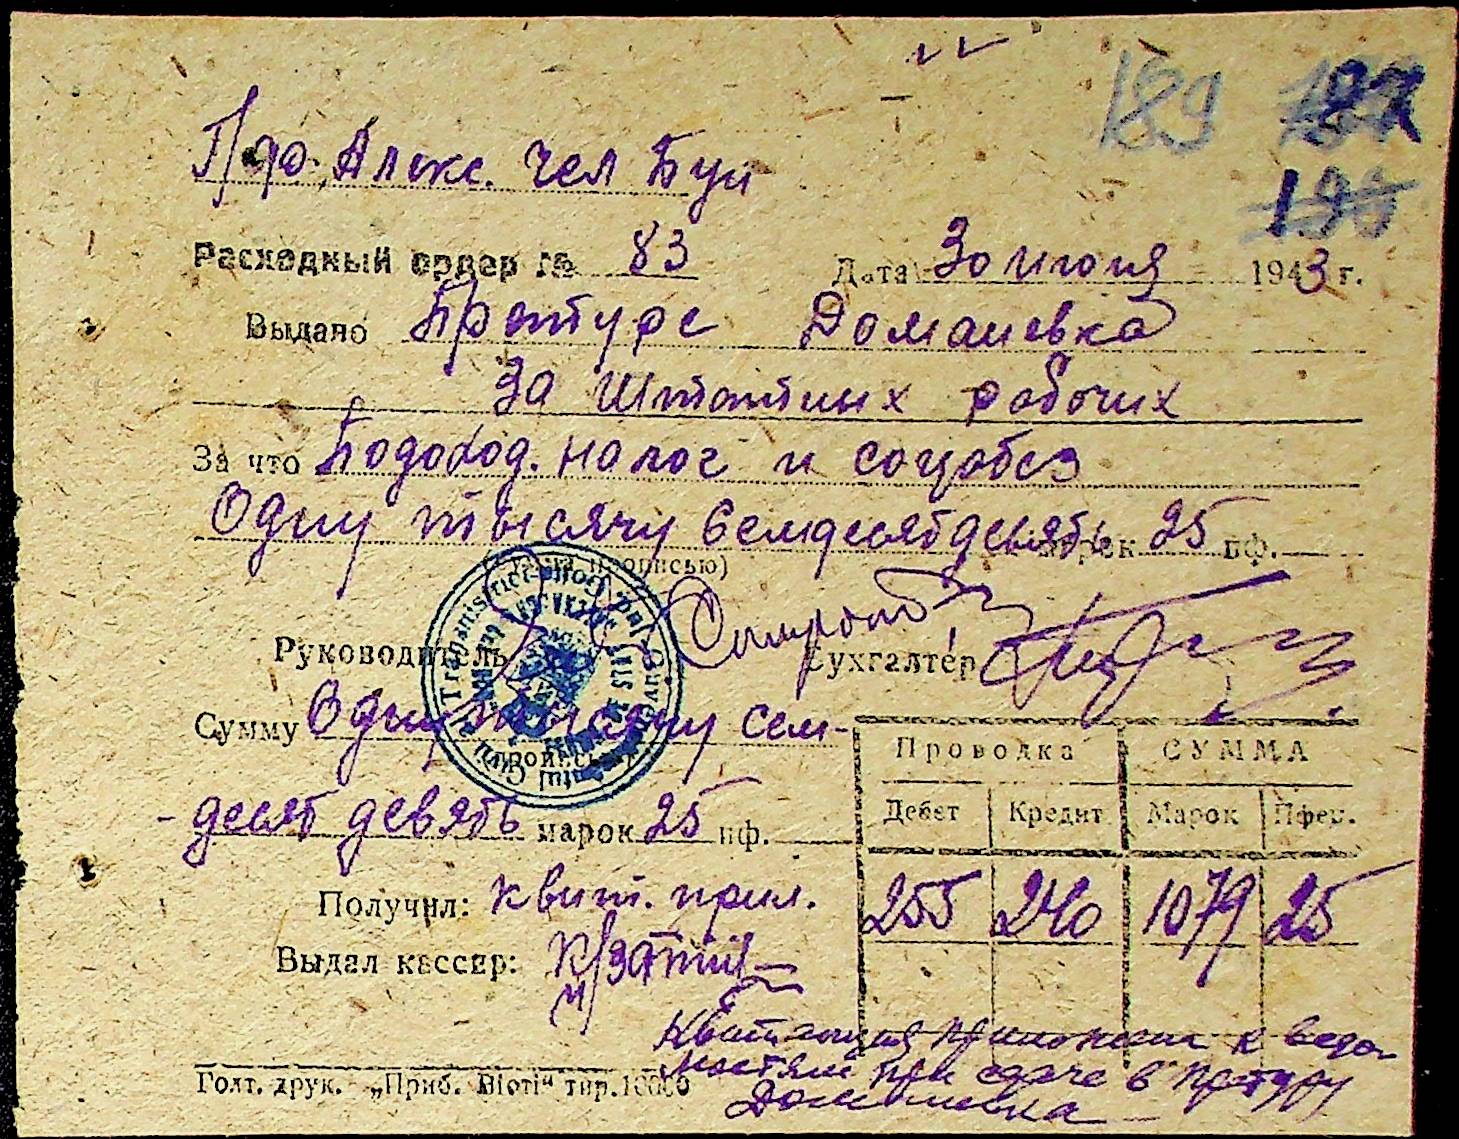 189
П/до, Алекс. Чел Буи
Расходный ордер № 83 Дата 30 июля 1943 г.
Выдано Претуре Доманевка
За штатных рабочих
За что Подоход. налог и соцобез
Одну тысячу семдесят девять марок 25 пф.
Руководитель Бухгалтер
Сумму Одну тысячу сем-
прописью
-десят девять марок 25 пф.
Проводка СУММА
Дебет Кредит Марок Пфен.
255 240 1079 25
Получил: Квит. прил.
Выдал кассир:
Квитанция приложена к ведо
мостям при сдаче в претуру
Доманевка
Голт. друк. „Приб. Вісті“ тир. 10000